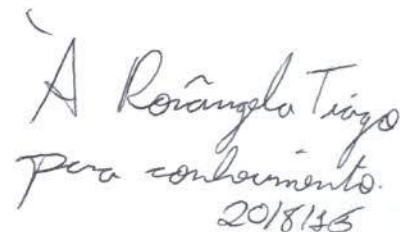 À Rosângela Tiago
para conhecimento.
20/8/16